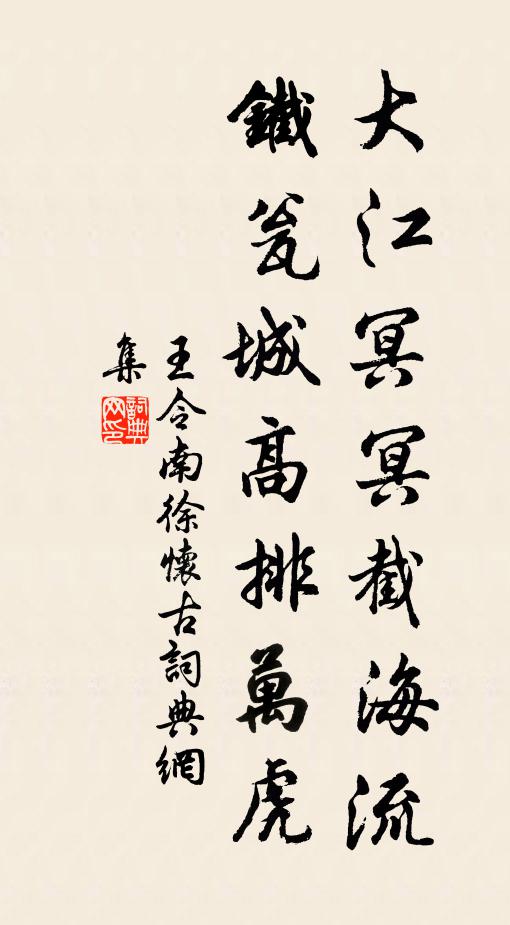 大江冥冥截海流
鐵瓮城高排萬虎
王令南徐懷古詞典網
集
詞典
网印